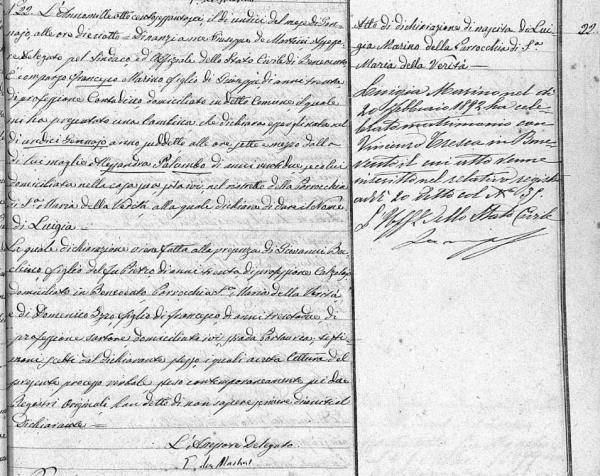 22. L'Anno mille ottocento settantasei, il dì undici del mese di Gen
najo, alle ore dieciotto Dinanzi a me Giuseppe de Martini Assesso
re delegato pel Sindaco ed Uffiziale dello Stato Civile di Benevento
è comparso Francesco Marino figlio di Giuseppe di anni trenta
di professione domiciliato in detto Comune, il quale
ci ha presentato una bambina che dichiara essergli nata nel
dì undici Gennajo anno suddetto alle ore sette e mezzo dalla
di lui moglie Alessandra Palumbo di anni ecolui
domiciliato nella casa nel ristretto della Parrocchia
di S.a Maria della Verità alla quale dichiara di dare il Nome
di Luigia—
La quale dichiarazione viene fatta alla presenza di Giovanni
figlio del fu Pietro di anni trenta di professione Calzolajo
domiciliato in Benevento Parrocchia S.a Maria della Verità
e di Domenico Izzo, figlio di Francesco di anni trentadue, di
professione sartore domiciliato ivi strada testi
moni scelti dal dichiarante stesso, i quali avuta lettura del
presente processo verbale steso contemporaneamente su due
Registri originali han detto di non sapere firmare al
Dichiarante—
L'Assessore Delegato
G. de Martini
Atto di dichiarazione di nascita di Lui
gia Marino della Parrocchia di S.a
Maria della Verità—
22.
Luigia Marino nel dì
20 Febbraio 1892 ha cele
brato matrimonio con
Vincenzo in Bene
vento, il cui atto venne
inscritto nel relativo registro
addì 20 detto col N.o 35.
L'Uff.le dello Stato Civile